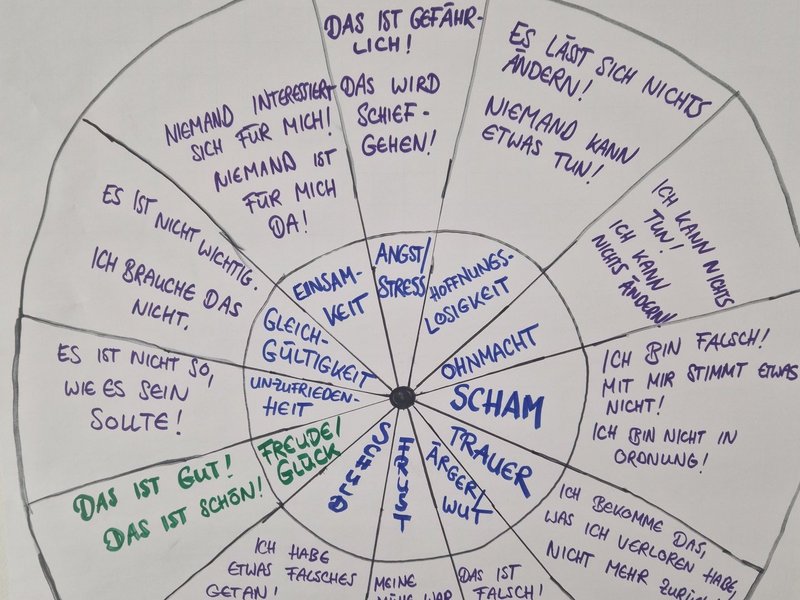 DAS IST GEFÄHR-
LICH!
DAS WIRD
SCHIEF-
GEHEN!
ANGST/
STRESS
ES LÄSST SICH NICHTS
ÄNDERN!
NIEMAND KANN
ETWAS TUN!
HOFFNUNGS-
LOSIGKEIT
ICH KANN NICHTS
TUN!
ICH KANN
NICHTS ÄNDERN!
OHNMACHT
ICH BIN FALSCH!
MIT MIR STIMMT ETWAS
NICHT!
ICH BIN NICHT IN
ORDNUNG!
SCHAM
ICH BEKOMME DAS,
WAS ICH VERLOREN HABE,
NICHT MEHR ZURÜCK!
TRAUER
DAS IST
FALSCH!
ÄRGER/
WUT
MEINE
MÜHE WAR
FRUST
ICH HABE
ETWAS FALSCHES
GETAN!
SCHULD
DAS IST GUT!
DAS IST SCHÖN!
FREUDE/
GLÜCK
ES IST NICHT SO,
WIE ES SEIN
SOLLTE!
UNZUFRIEDEN-
HEIT
ES IST NICHT WICHTIG.
ICH BRAUCHE DAS
NICHT.
GLEICH-
GÜLTIGKEIT
NIEMAND INTERESSIERT
SICH FÜR MICH!
NIEMAND IST
FÜR MICH
DA!
EINSAM-
KEIT